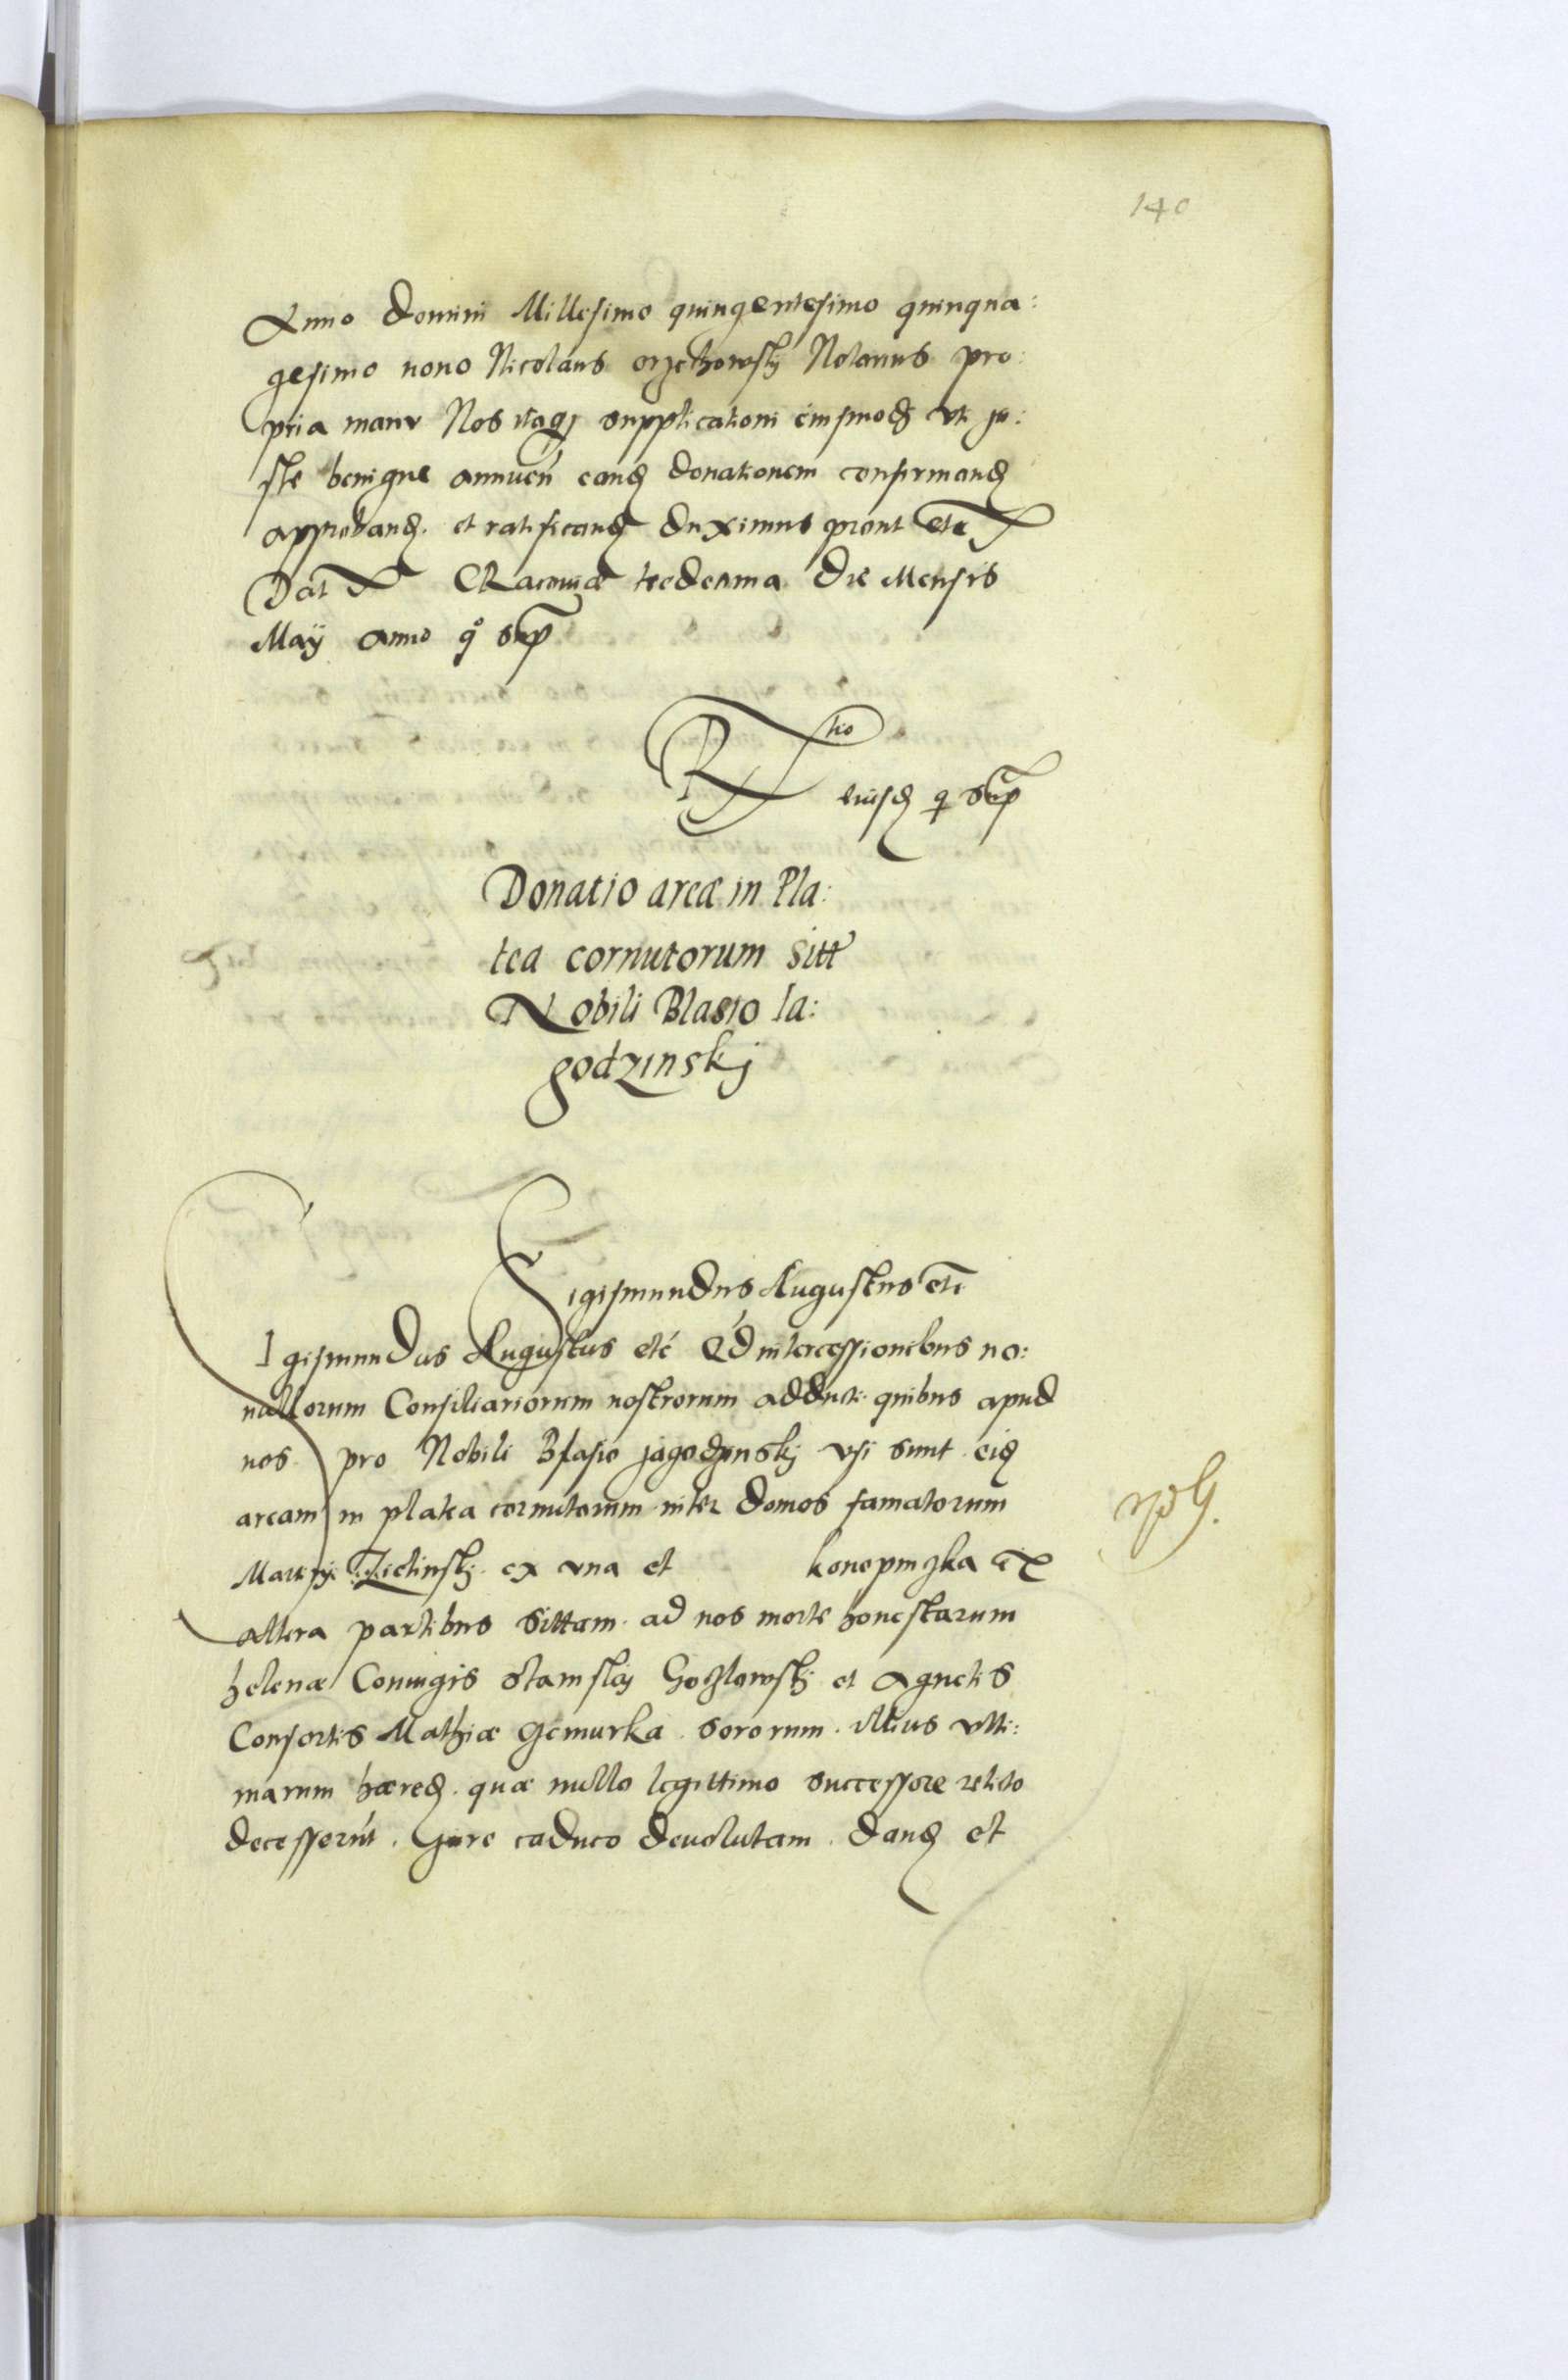 140
Anno Domini Millesimo quingentesimo quinqua:
gesimo nono Nicolaus orzechowskj Notarius pro:
pria manv Nos itaqȝ supplicationi eiusmodj vti ju:
ste benigne annuen̄ eandꝫ donationem confirmandꝫ
approbandꝫ et ratificandꝫ duximus prout etc
Dat CRacouiæ tredecima die Mensis
Maÿ anno qͦ sup̄
Rtio
eiusdꝫ q sup̄
Donatio areæ in Pla:
tea cornutorum sitt
Nobili Blasio Ia:
godzinskj
Sigismundus Augustus etc
Igismundus Augustus etc Qd intercessionibus no:
nullorum Consiliariorum nostrorum adducti quibus apud
nos pro Nobili Blasio jagodzinskj vsi sunt eidꝫ
aream in platea cornutorum inter domos famatorum
ex vna et konopniczka ex
altera partibus sittam ad nos morte honestarum
helenæ Coniugis Stanislaj Gozlowskj et Agnetis
Consortis Mathiæ Gemurka sororum illius vlti:
marum hæredꝫ quæ nullo legittimo successore relicto
decesserūt Jure caduco deuolutam dandꝫ et